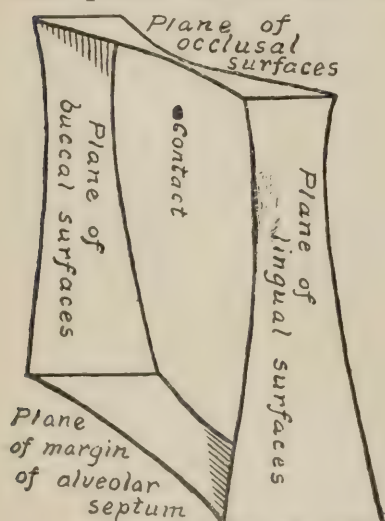 Plane of
occlusal
surfaces
Contact
Plane of
buccal surfaces
Plane of
lingual surfaces
Plane
of margin
of alveolar
septum